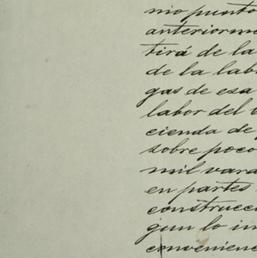 mo punto
anteriorme
tirá de la
de la lab
gas de esa
labor del
cienda de
sobre poco
mil vara
en partes
construcc
gun lo in
convenien